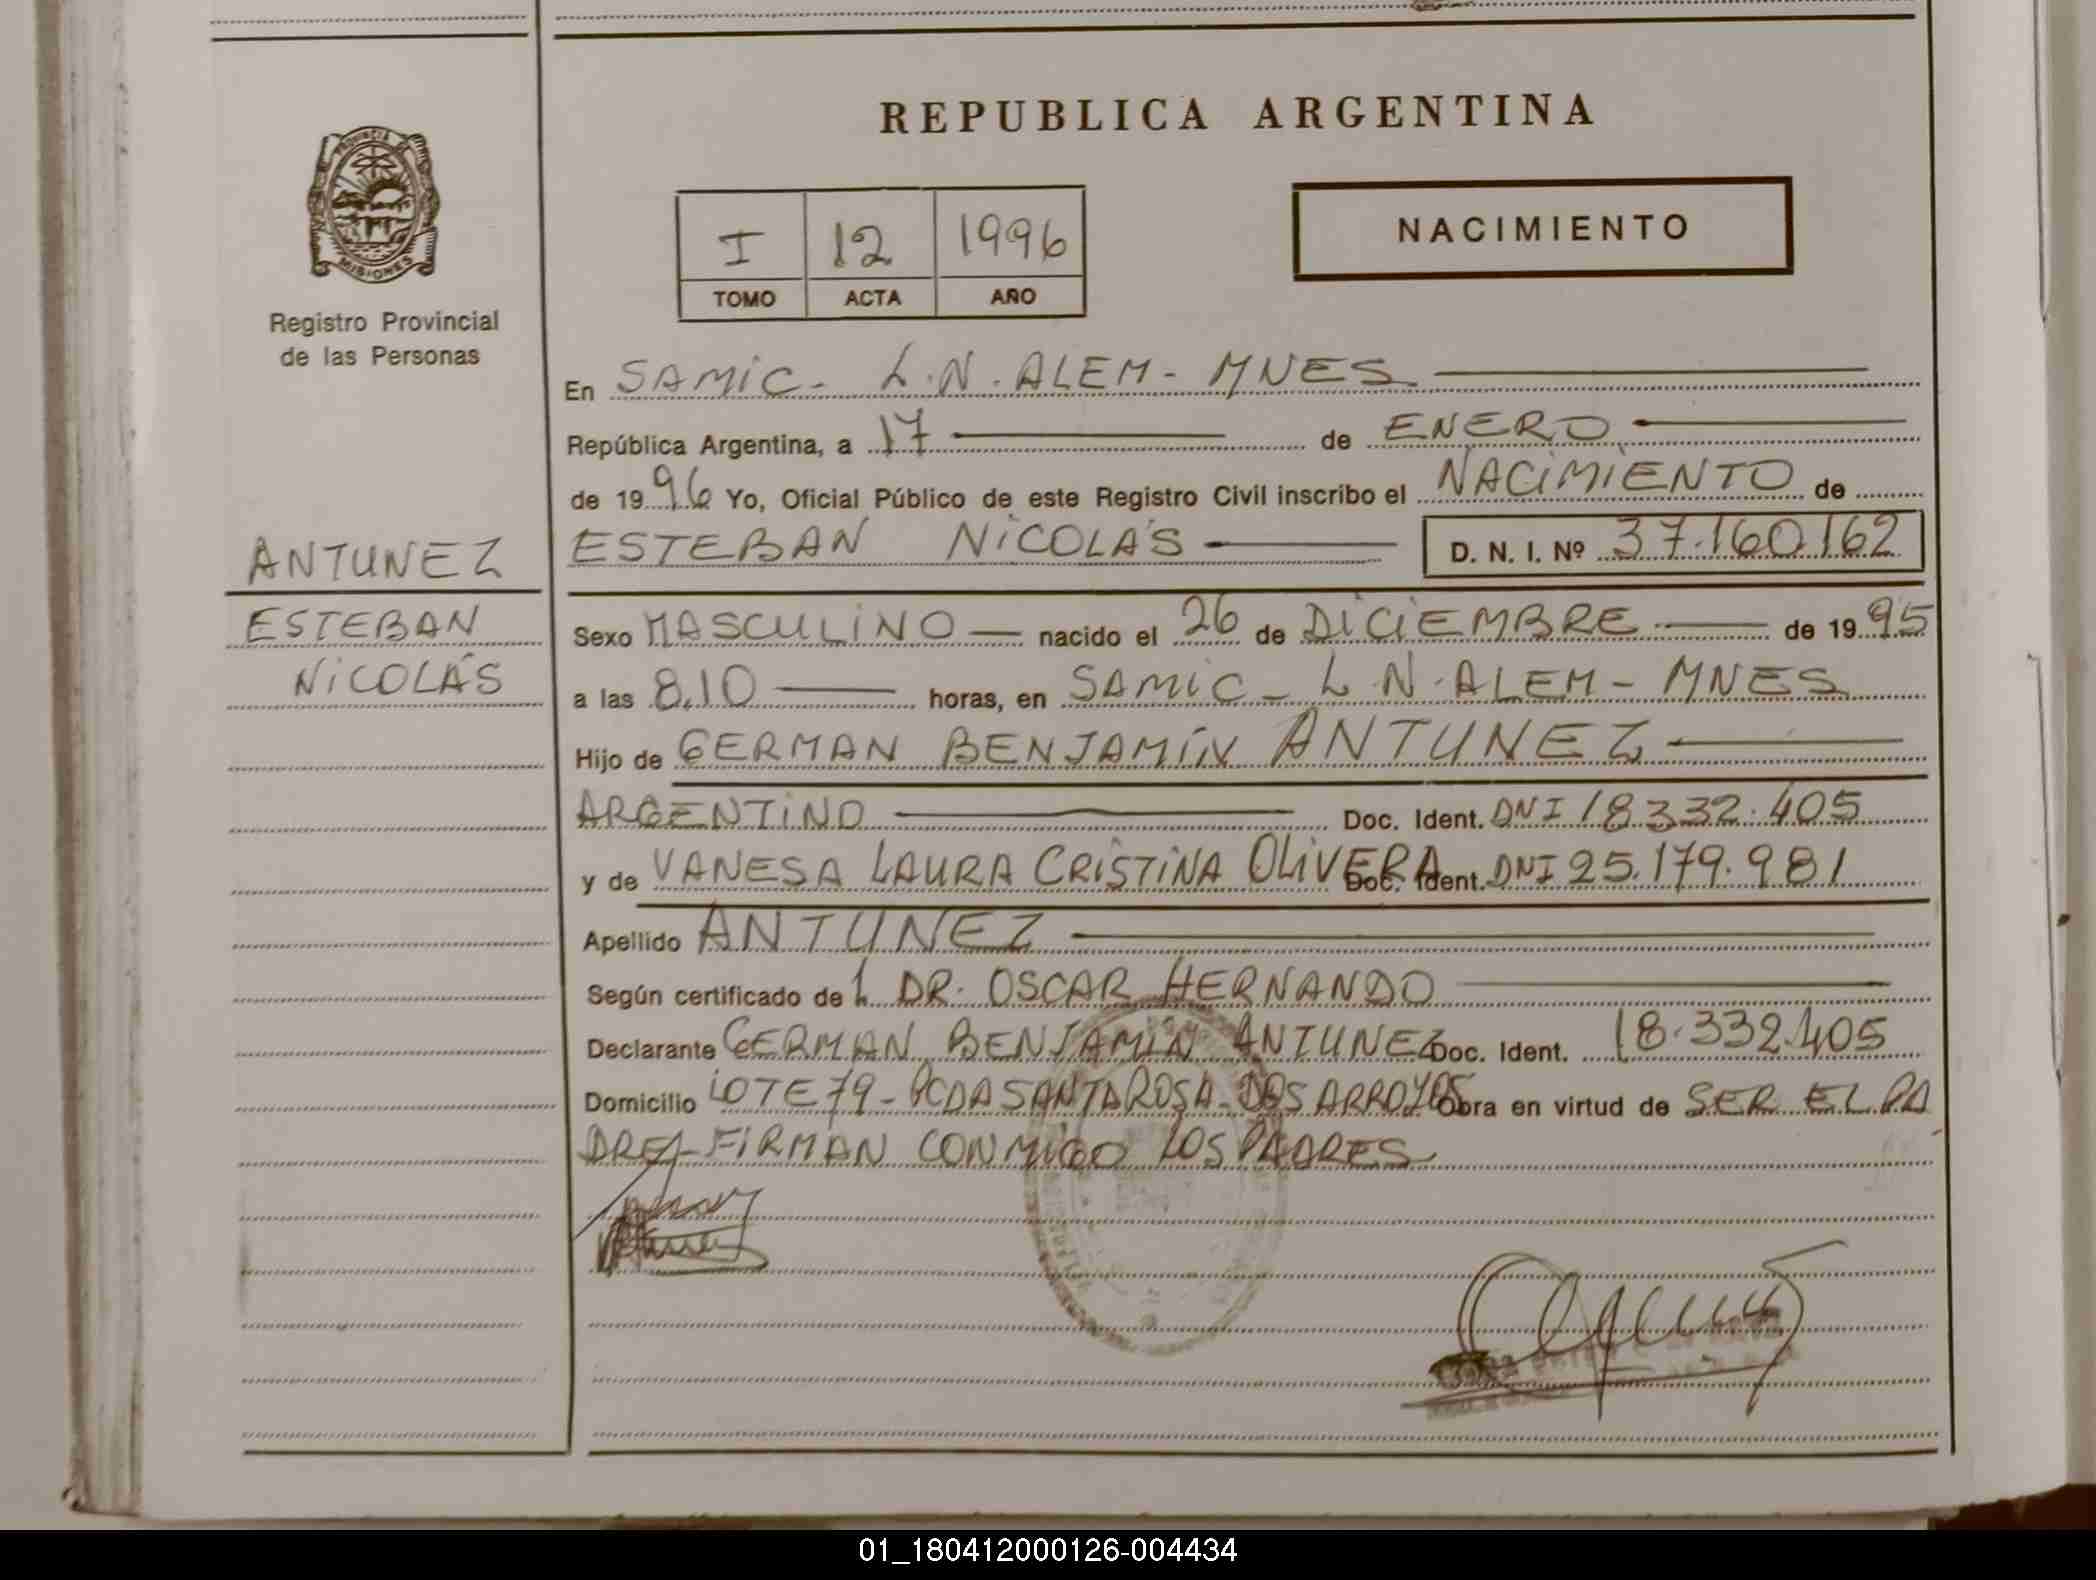 REPUBLICA ARGENTINA
PROVINCIA DE
MISIONES
Registro Provincial
de las Personas
I 12 1996
TOMO ACTA AÑO
NACIMIENTO
En SAMIC - L.N. ALEM - MNES
República Argentina, a 17 de ENERO
de 1996 Yo, Oficial Público de este Registro Civil inscribo el NACIMIENTO de
ESTEBAN NICOLÁS D. N. I. Nº 37.160.162
ANTUNEZ
ESTEBAN
NICOLÁS
Sexo MASCULINO nacido el 26 de DICIEMBRE de 1995
a las 8,10 horas, en SAMIC - L.N. ALEM - MNES
Hijo de GERMAN BENJAMÍN ANTUNEZ
ARGENTINO Doc. Ident. DNI 18.332.405
y de VANESA LAURA CRISTINA OLIVERA Doc. Ident. DNI 25.179.981
Apellido ANTUNEZ
Según certificado de L DR. OSCAR HERNANDO
Declarante GERMAN BENJAMÍN ANTUNEZ Doc. Ident. 18.332.405
Domicilio LOTE 79 - PCDA SANTA ROSA - DOS ARROYOS Obra en virtud de SER EL PA
DRE - FIRMAN CONMIGO LOS PADRES
01_180412000126-004434